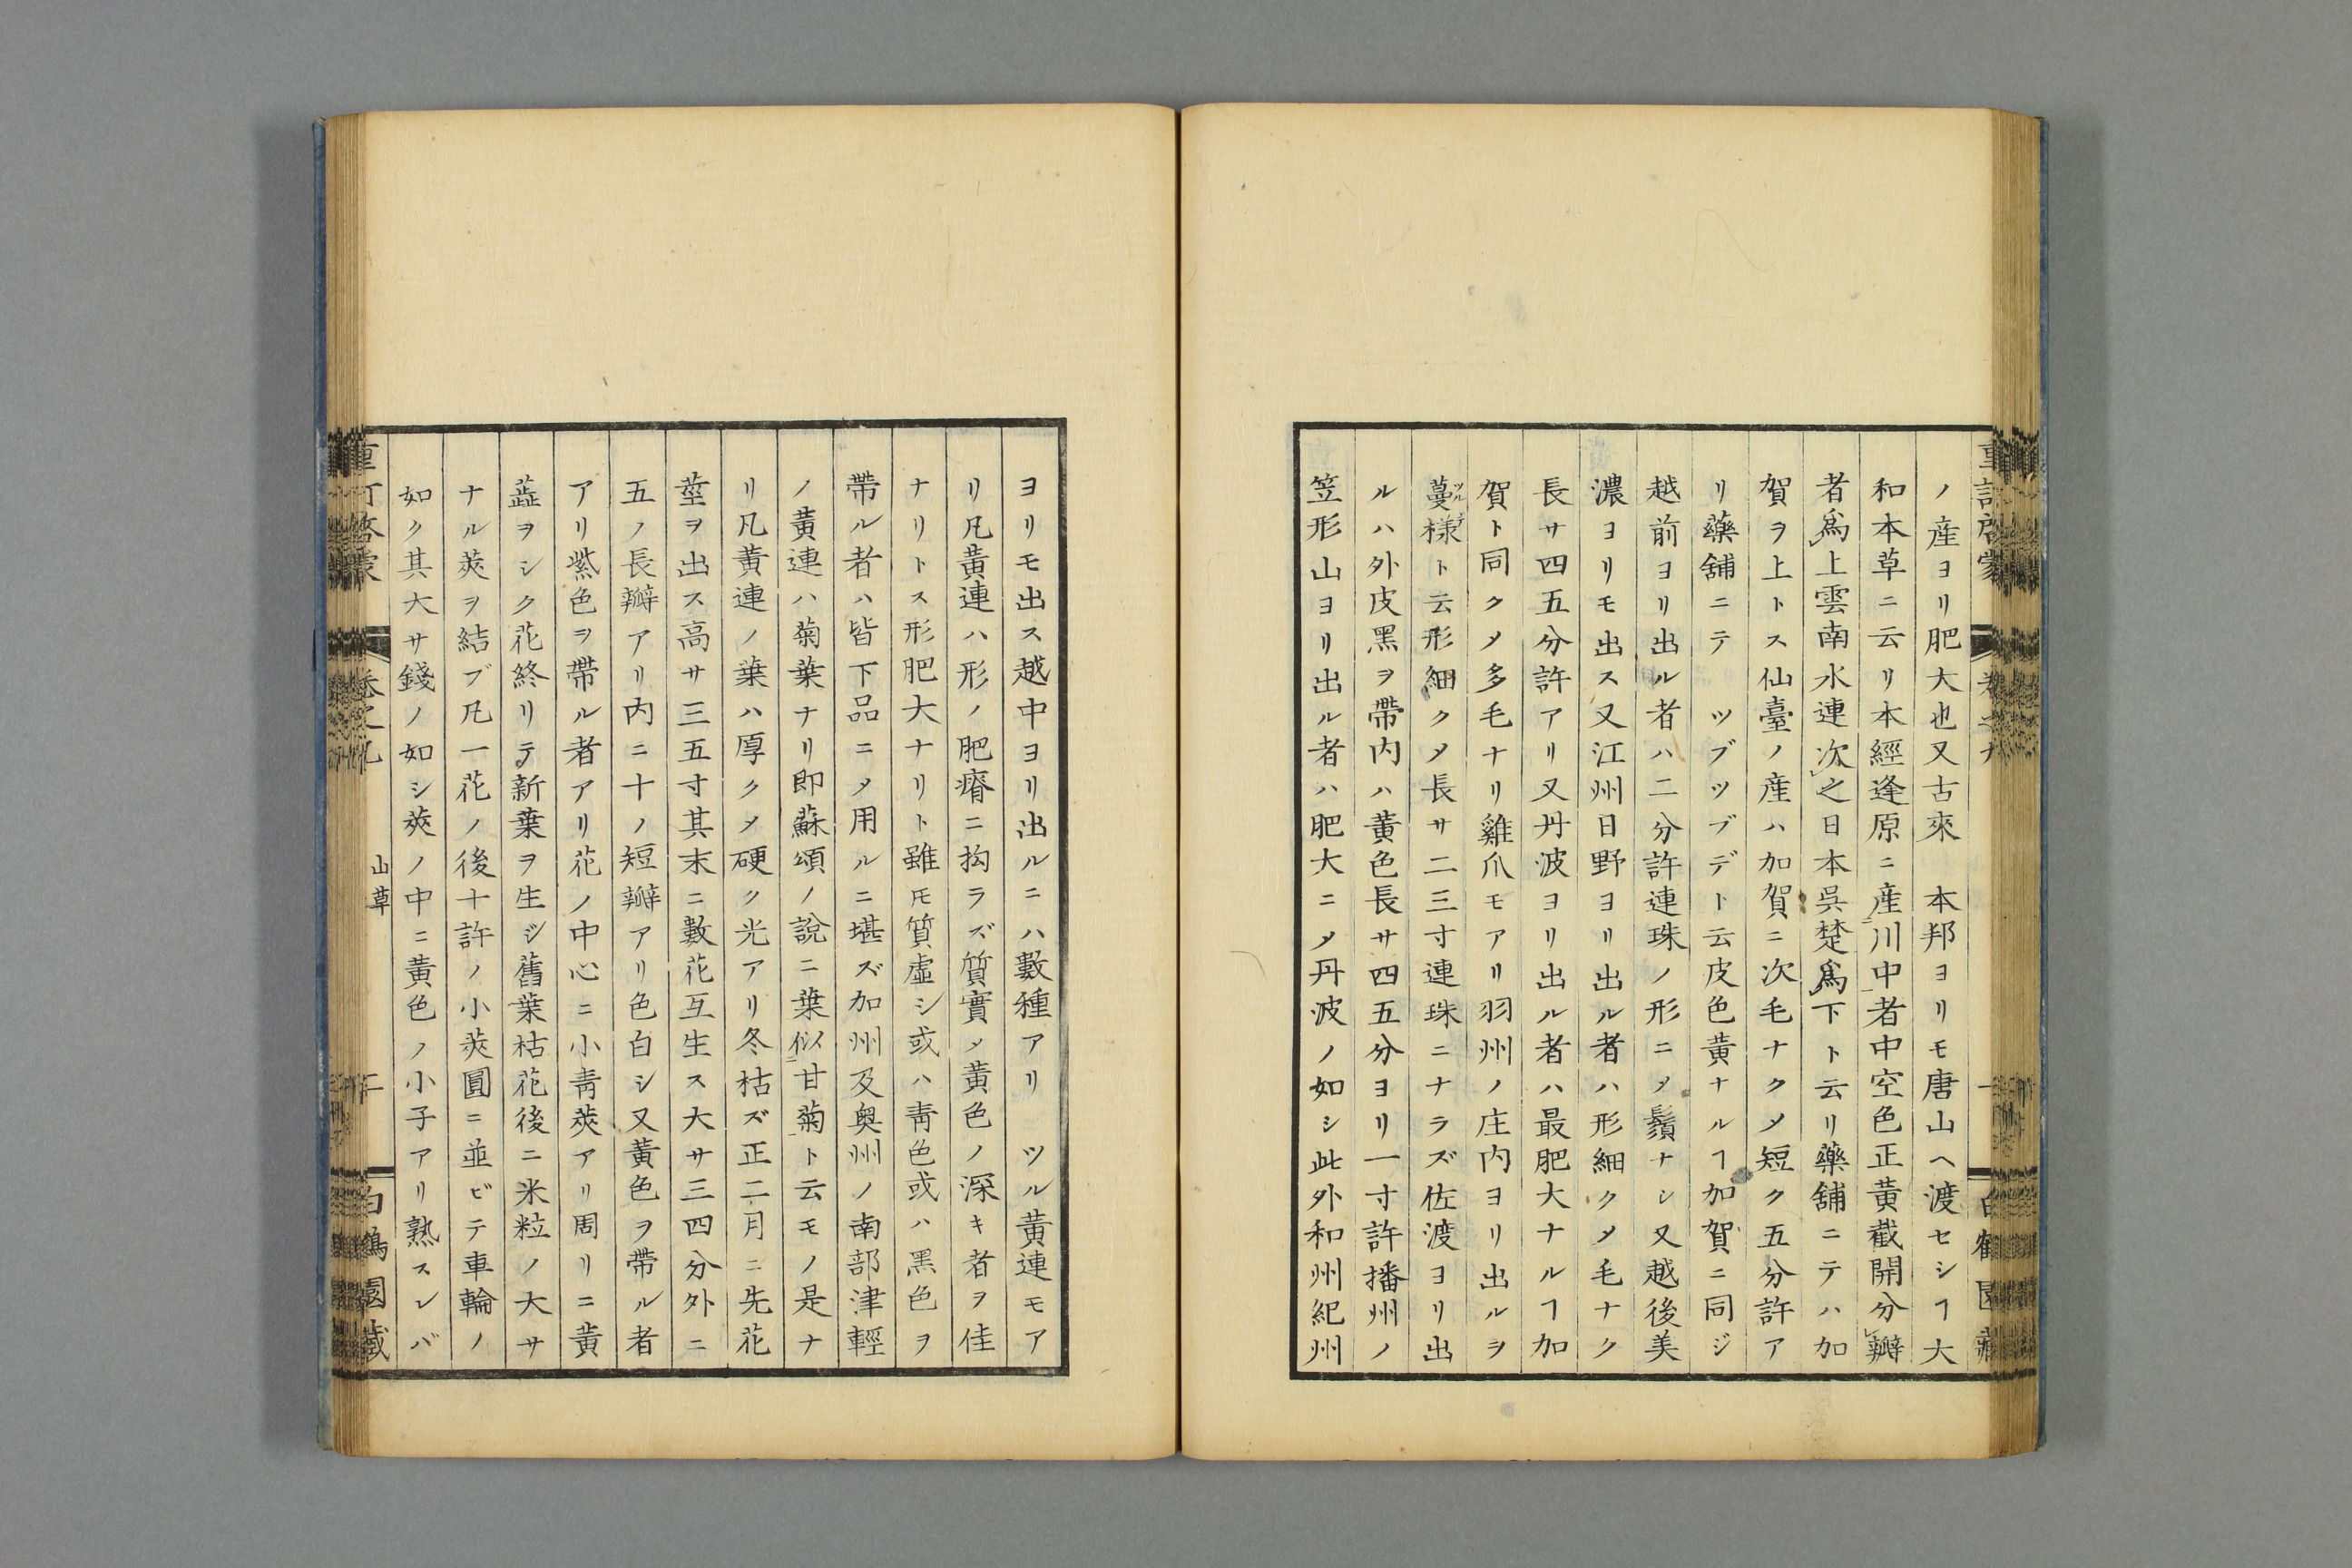 ノ産ヨリ肥大也又古來　本邦ヨリモ唐山ヘ渡セシヿ大
和本草ニ云リ本經逢原ニ産_ニ川中_一者中空色正黄截開分_レ瓣
者爲_レ上雲南水連次_レ之日本呉楚爲_レ下ト云リ藥舗ニテハ加
賀ヲ上トス仙臺ノ産ハ加賀ニ次毛ナクメ短ク五分許ア
リ藥舗ニテ　ツブツブデト云皮色黄ナルヿ加賀ニ同ジ
越前ヨリ出ル者ハ二分許連珠ノ形ニメ鬚ナシ又越後美
濃ヨリモ出ス又江州日野ヨリ出ル者ハ形細クメ毛ナク
長サ四五分許アリ又丹波ヨリ出ル者ハ最肥大ナルヿ加
賀ト同クメ多毛ナリ雞爪モアリ羽州ノ庄内ヨリ出ルヲ
蔓様ト云形細クメ長サ二三寸連珠ニナラズ佐渡ヨリ出
ルハ外皮黑ヲ帶内ハ黄色長サ四五分ヨリ一寸許播州ノ
笠形山ヨリ出ル者ハ肥大ニメ丹波ノ如シ此外和州紀州
ヨリモ出ス越中ヨリ出ルニハ數種アリ　ツル黄連モア
リ凡黄連ハ形ノ肥瘠ニ拘ラズ質實メ黄色ノ深キ者ヲ佳
ナリトス形肥大ナリト雖モ質虛シ或ハ青色或ハ黑色ヲ
帶ル者ハ皆下品ニメ用ルニ堪ズ加州及奥州ノ南部津輕
ノ黄連ハ菊葉ナリ即蘇頌ノ說ニ葉似_ニ甘菊_一ト云モノ是ナ
リ凡黄連ノ葉ハ厚クメ硬ク光アリ冬枯ズ正二月ニ先花
莖ヲ出ス高サ三五寸其末ニ數花互生ス大サ三四分外ニ
五ノ長瓣アリ内ニ十ノ短瓣アリ色白シ又黄色ヲ帶ル者
アリ紫色ヲ帶ル者アリ花ノ中心ニ小青莢アリ周リニ黄
蕋ヲシク花終リテ新葉ヲ生ジ舊葉枯花後ニ米粒ノ大サ
ナル莢ヲ結ブ凡一花ノ後十許ノ小莢圓ニ並ビテ車輪ノ
如ク其大サ錢ノ如シ莢ノ中ニ黄色ノ小子アリ熟スレバ
山草